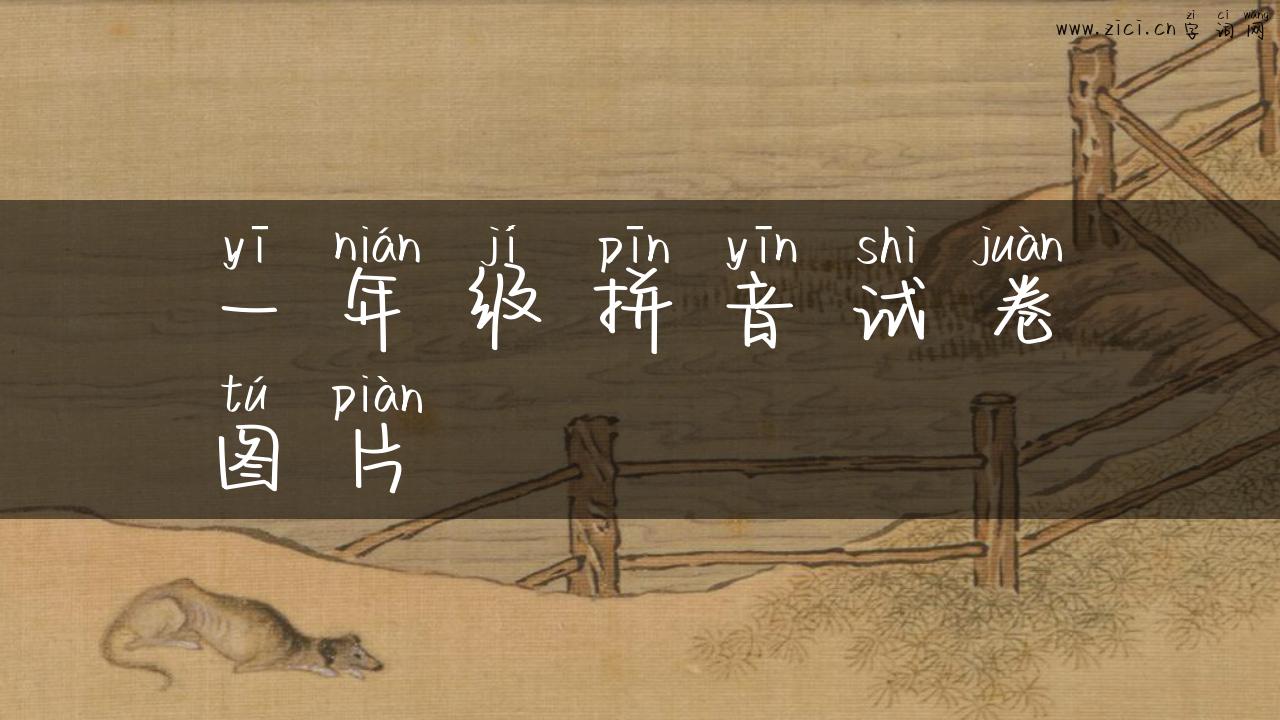 zi ci wang
www.zici.cn字词网
yī nián jí pīn yīn shì juàn
一年级拼音试卷
tú piàn
图片